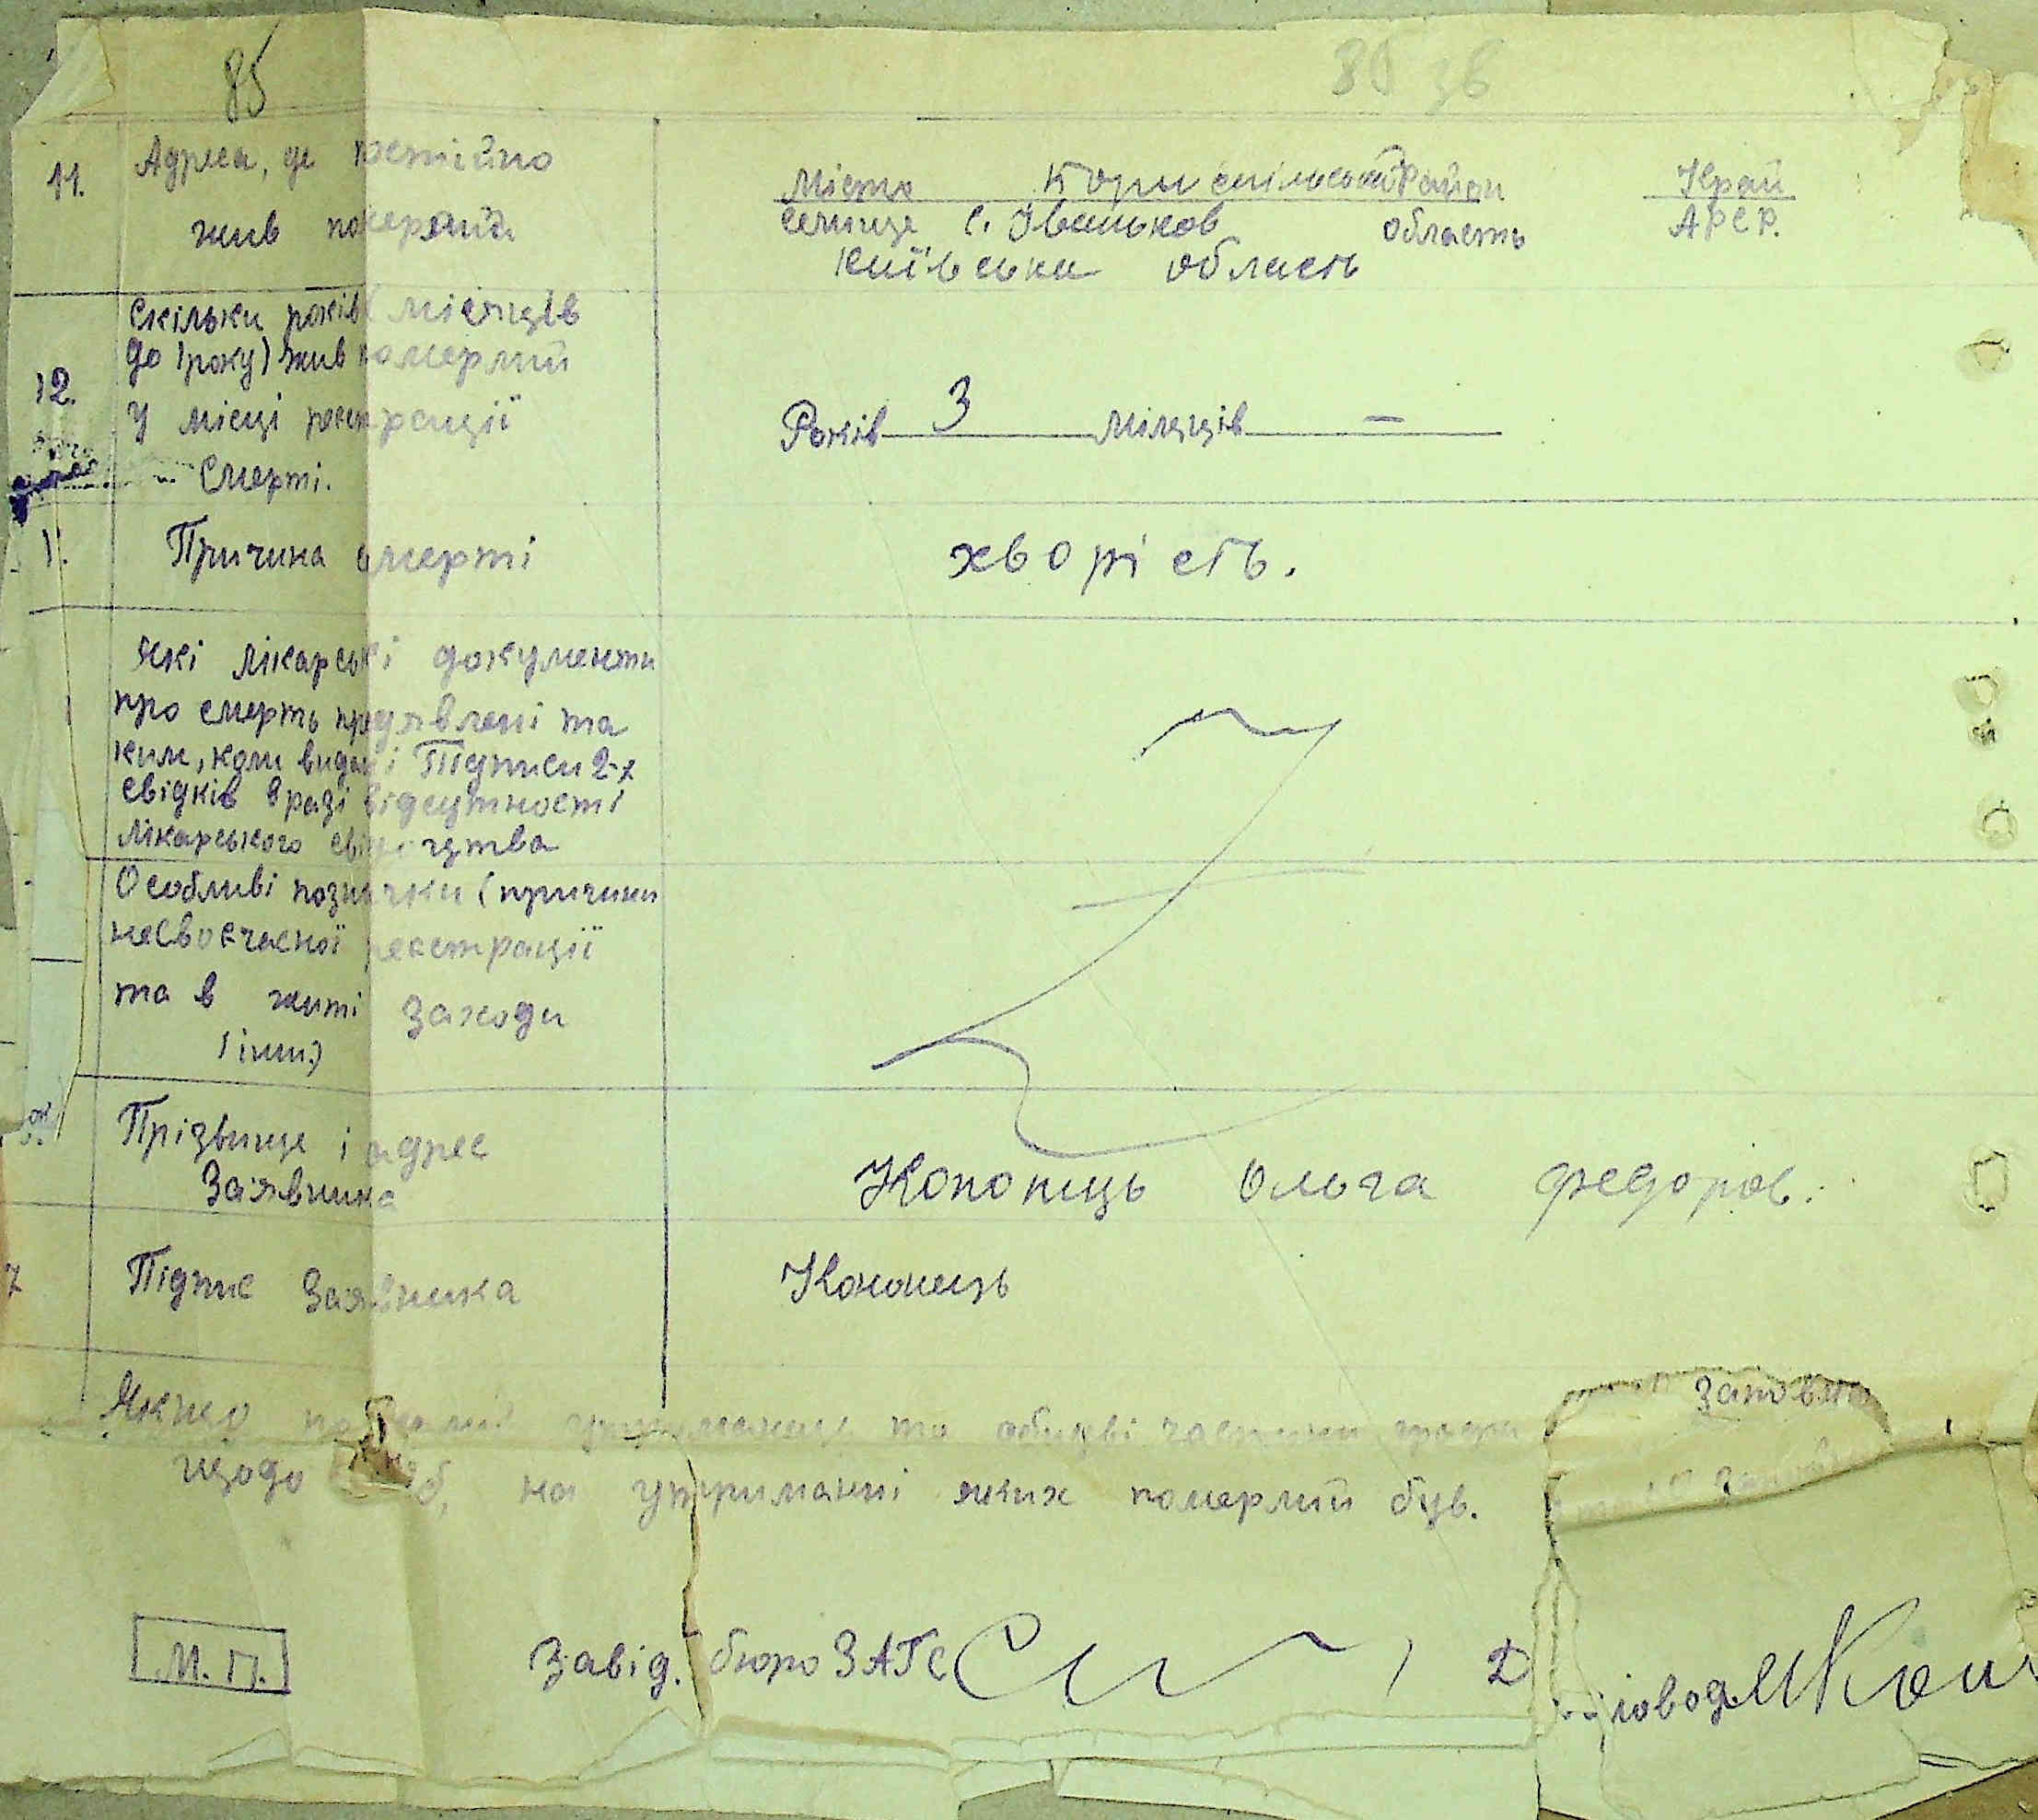 85
80 зв
11. Адреса, де постійно
жив померлий
Місто Борыспільський Район Край
селище с. Іваньков область АРСР.
київська область
скільки років (місяців
до 1 року) жив померлий
12. У місці реєстрації
Років 3 Місяців —
Смерті.
Причина смерті хворість.
які лікарські документи
про смерть предявлені та
ким, коли видані Підписи 2-х
свідків вразі відсутності
лікарського свідоцтва
Особливі позначки (причини
несвоєчасної реєстрації
та в житі заходи
і інш.)
Прізвище і адрес
Заявника
Конопець Ольга федоров.
7 Підпис Заявника Кононець
Якщо то обидві частини графи Заповн
щодо осіб, на утриманні яких померлий був.
М. П. Завід. бюро ЗАГС Діловод